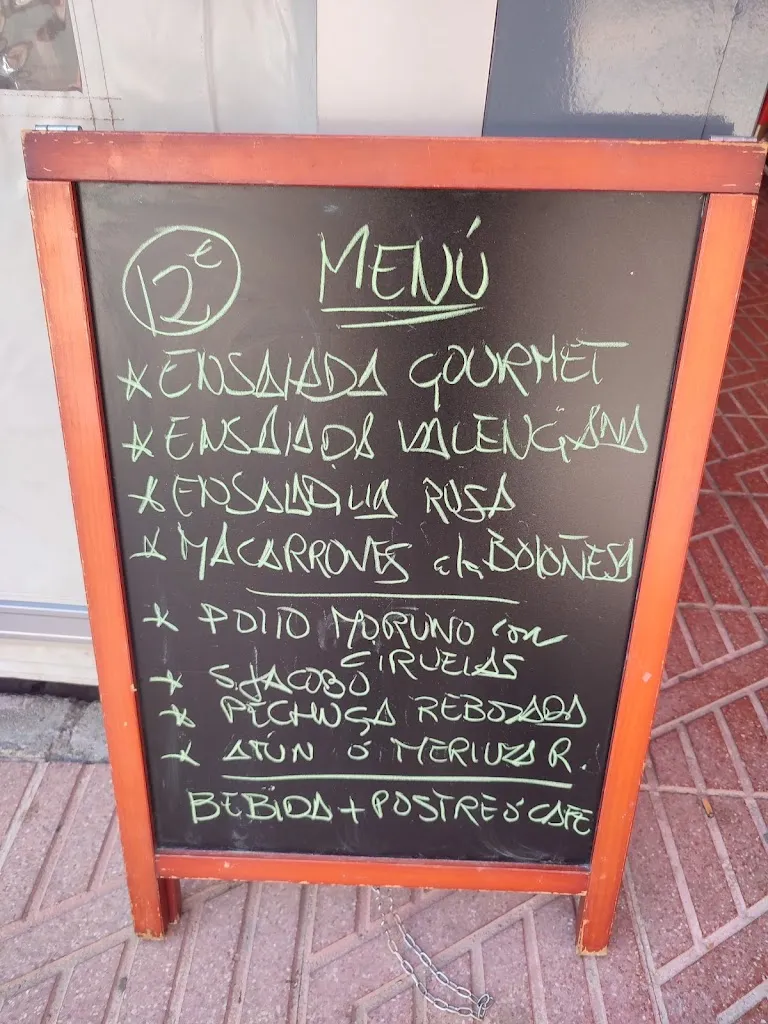 12€ MENÚ
* ENSALADA GOURMET
* ENSALADA VALENCIANA
* ENSALADILLA RUSA
* MACARRONES a la BOLOÑESA
* POLLO MORUNO con
CIRUELAS
* S. JACOBO
* PECHUGA REBOZADA
* ATÚN Ó MERLUZA R.
BEBIDA + POSTRE Ó CAFÉ